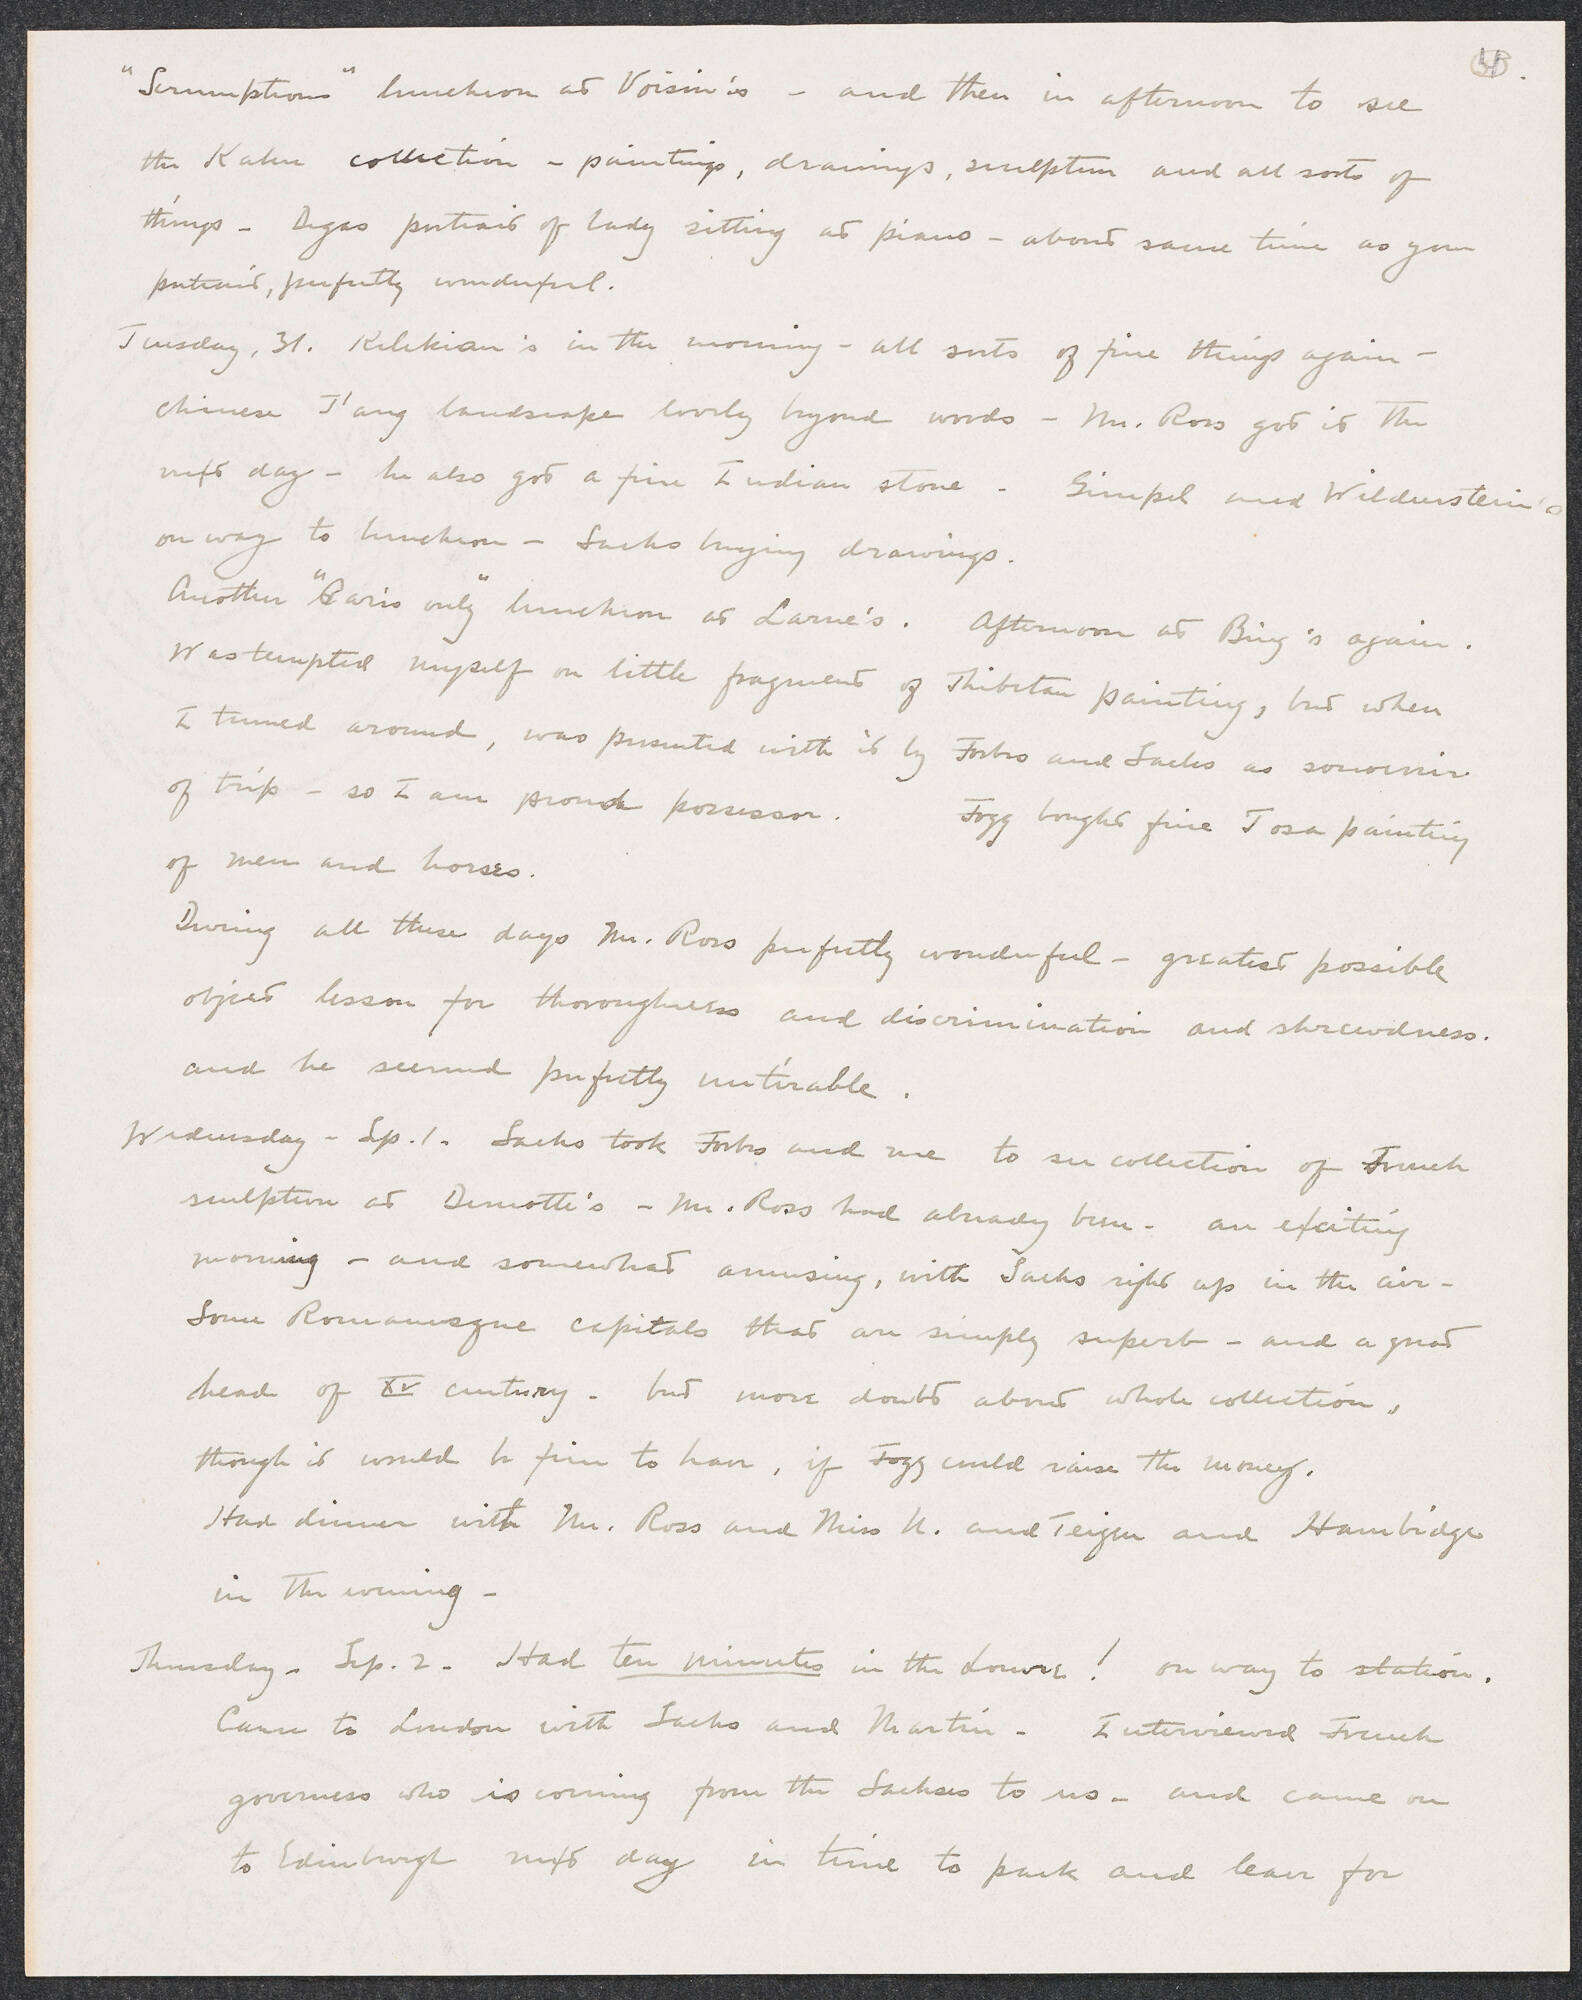 "Scrumptious" luncheon at Voisin's – and then in afternoon to see
the Kahn collection – paintings, drawings, sculpture and all sorts of
things – Degas portrait of lady sitting at piano – about same time as your
portrait, perfectly wonderful.
Tuesday, 31. Kelekian's in the morning – all sorts of fine things again –
chinese T'ang landscape lovely beyond words – Mr. Ross got it the
next day – he also got a fine Indian stone – Gimpel and Wildenstein's
on way to luncheon – Sachs buying drawings.
Another "Paris only" luncheon at Larue's. Afternoon at Bing's again.
Was tempted myself on little fragment of Thibetan painting, but when
I turned around, was presented with it by Forbes and Sachs as souvenir
of trip – so I am proud possessor. Fogg bought fine Tosa painting
of men and horses.
During all these days Mr. Ross perfectly wonderful – greatest possible
object lesson for thoroughness and discrimination and shrewdness.
and he seemed perfectly untirable.
Wednesday – Sep. 1. Sachs took Forbes and me to see collection of French
sculpture at Demotte's – Mr. Ross had already been – an exciting
morning – and somewhat amusing, with Sachs right up in the air –
Some Romanesque capitals that are simply superb – and a great
head of XV century – but more doubt about whole collection,
though it would be fine to have, if Fogg could raise the money.
Had dinner with Mr. Ross and Miss N. and Teigen and Hambidge
in the evening –
Thursday – Sep. 2 – Had ten minutes in the Louvre! on way to station.
Came to London with Sachs and Martin – Interviewed French
governess who is coming from the Sachses to us – and came on
to Edinburgh next day in time to pack and leave for